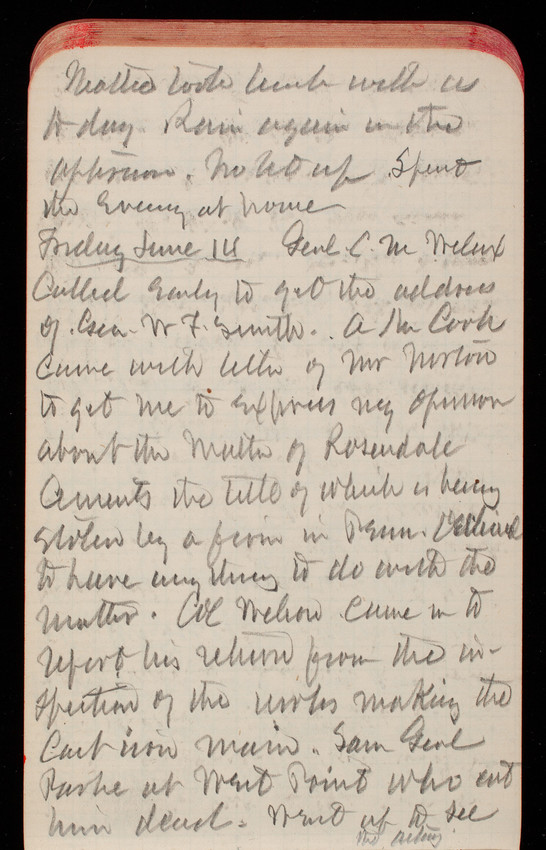 Mattie took lunch with us
to day. Rain again in the
afternoon. No let up. Spent
the Evening at home
Friday June 14 Genl. C. M Wilcox
Called Early to get the address
of Gen. W F. Smith. A Mr Cook
came with letter of Mr Norton
to get me to Express my opinion
about the Matter of Rosendale
Cements the title of which is being
stolen by a firm in Penn. Declined
to have any thing to do with the
matter. Col Wilson came in to
report his return from the in-
spection of the works making the
Cast iron main. Saw Genl
Parke at West Point who cut
him dead. Went up to see
the acting